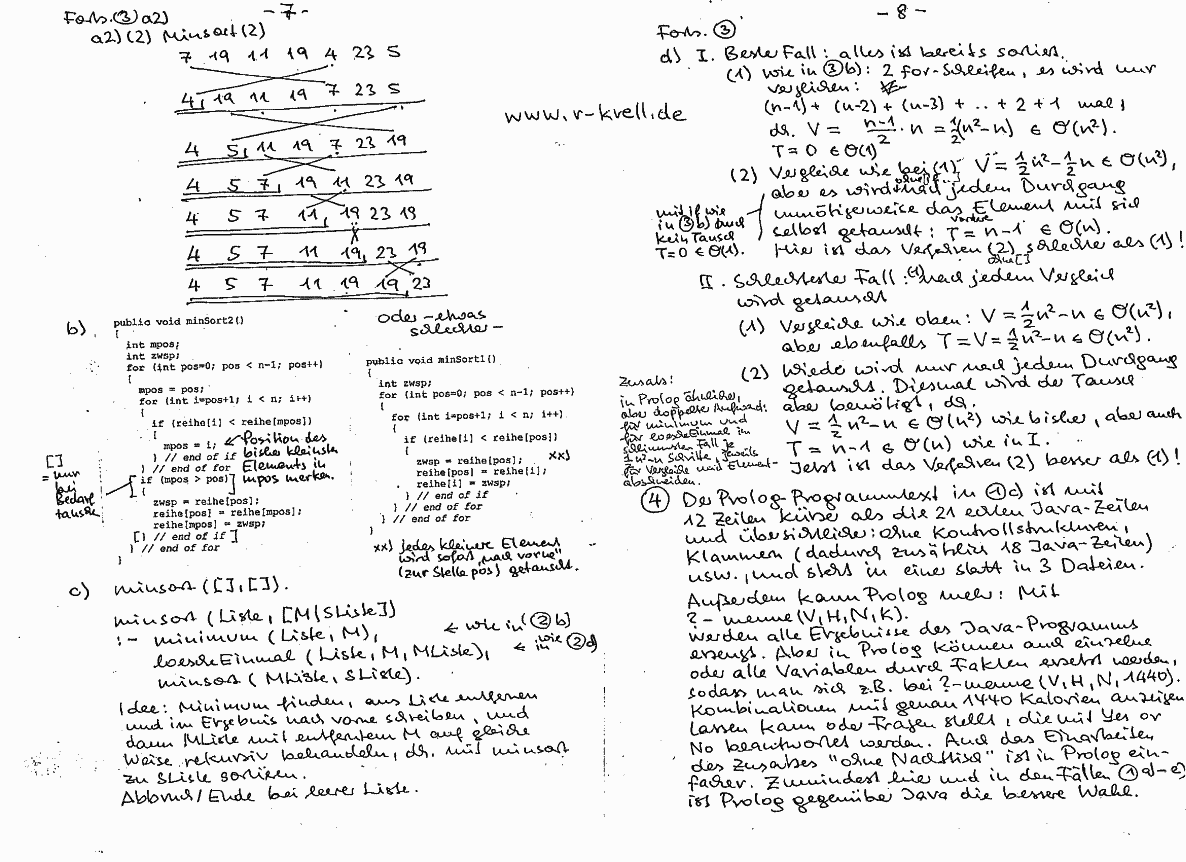 Forts. ③ a2)
- 7 -
a2) (2) Minsort (2)
7 19 11 19 4 23 5
4, 19 11 19 7 23 5
4 5, 11 19 7 23 19
4 5 7, 19 11 23 19
4 5 7 11, 19 23 19
4 5 7 11 19, 23 19
4 5 7 11 19 19, 23
www.r-krell.de
b)
public void minSort2()
{
int mpos;
int zwsp;
for (int pos=0; pos < n-1; pos++)
{
mpos = pos;
for (int i=pos+1; i < n; i++)
{
if (reihe[i] < reihe[mpos])
{
mpos = i; ← Position des
} // end of if bisher kleinsten
} // end of for Elements in
if (mpos > pos) mpos merken.
{
zwsp = reihe[pos];
reihe[pos] = reihe[mpos];
reihe[mpos] = zwsp;
[} // end of if ]
} // end of for
}
[ ]
= nur
bei
Bedarf
tauschen
oder - etwas
schlechter -
public void minSort1()
{
int zwsp;
for (int pos=0; pos < n-1; pos++)
{
for (int i=pos+1; i < n; i++)
{
if (reihe[i] < reihe[pos])
{ xx)
zwsp = reihe[pos];
reihe[pos] = reihe[i];
reihe[i] = zwsp;
} // end of if
} // end of for
} // end of for
}
xx) jedes kleinere Element
wird sofort „nach vorne“
(zur Stelle pos) getauscht.
c) minsort ([],[]).
minsort (Liste, [M|SListe])
:- minimum (Liste, M), ← wie in ②b)
loescheEinmal (Liste, M, MListe), ← wie in ②d)
minsort (MListe, SListe).
Idee: Minimum finden, aus Liste entfernen
und im Ergebnis nach vorne schreiben, und
dann MListe mit entferntem M auf gleiche
Weise rekursiv behandeln, dh. mit minsort
zu SListe sortieren.
Abbruch/Ende bei leerer Liste.
- 8 -
Forts. ③
d) I. Bester Fall: alles ist bereits sortiert.
(1) wie in ③b): 2 for-Schleifen, es wird nur
verglichen:
(n-1) + (n-2) + (n-3) + .. + 2 + 1 mal,
dh. V = n-1/2 · n = ½(n²-n) ∈ O(n²).
T = 0 ∈ O(1)
(2) Vergleiche wie bei (1), V = ½n²-½n ∈ O(n²),
aber es wird nach jedem Durchgang
unnötigerweise das Element mit sich
selbst getauscht: T = n-1 ∈ O(n).
Hier ist das Verfahren (2) ohne [] schlechter als (1)!
mit if wie
in ③b) auch
kein Tausch
T=0 ∈ O(1).
II. Schlechtester Fall: (1) nach jedem Vergleich
wird getauscht
(1) Vergleiche wie oben: V = ½n²-n ∈ O(n²),
aber ebenfalls T = V = ½n²-n ∈ O(n²).
(2) Wieder wird nur nach jedem Durchgang
getauscht. Diesmal wird der Tausch
aber benötigt, dh.
V = ½n²-n ∈ O(n²) wie bisher, aber auch
T = n-1 ∈ O(n) wie in I.
Jetzt ist das Verfahren (2) besser als (1)!
Zusatz:
in Prolog ähnlicher,
aber doppelter Aufwand:
für minimum und
für loescheEinmal im
schlimmsten Fall je
½n²-n Schritte, jeweils
für Vergleiche und Element-
abschneiden.
④ Der Prolog-Programmtext in ①c) ist mit
12 Zeilen kürzer als die 21 echten Java-Zeilen
und übersichtlicher: ohne Kontrollstrukturen,
Klammern (dadurch zusätzlich 18 Java-Zeilen)
usw., und steht in einer statt in 3 Dateien.
Außerdem kann Prolog mehr: Mit
?- menue(V,H,N,K).
werden alle Ergebnisse des Java-Programms
erzeugt. Aber in Prolog können auch einzelne
oder alle Variablen durch Fakten ersetzt werden,
sodass man sich z.B. bei ?-menue(V,H,N,1440).
Kombinationen mit genau 1440 Kalorien anzeigen
lassen kann oder Fragen stellt, die mit Yes or
No beantwortet werden. Auch das Einarbeiten
des Zusatzes "ohne Nachtisch" ist in Prolog ein-
facher. Zumindest hier und in den Fällen ①a)-e)
ist Prolog gegenüber Java die bessere Wahl.